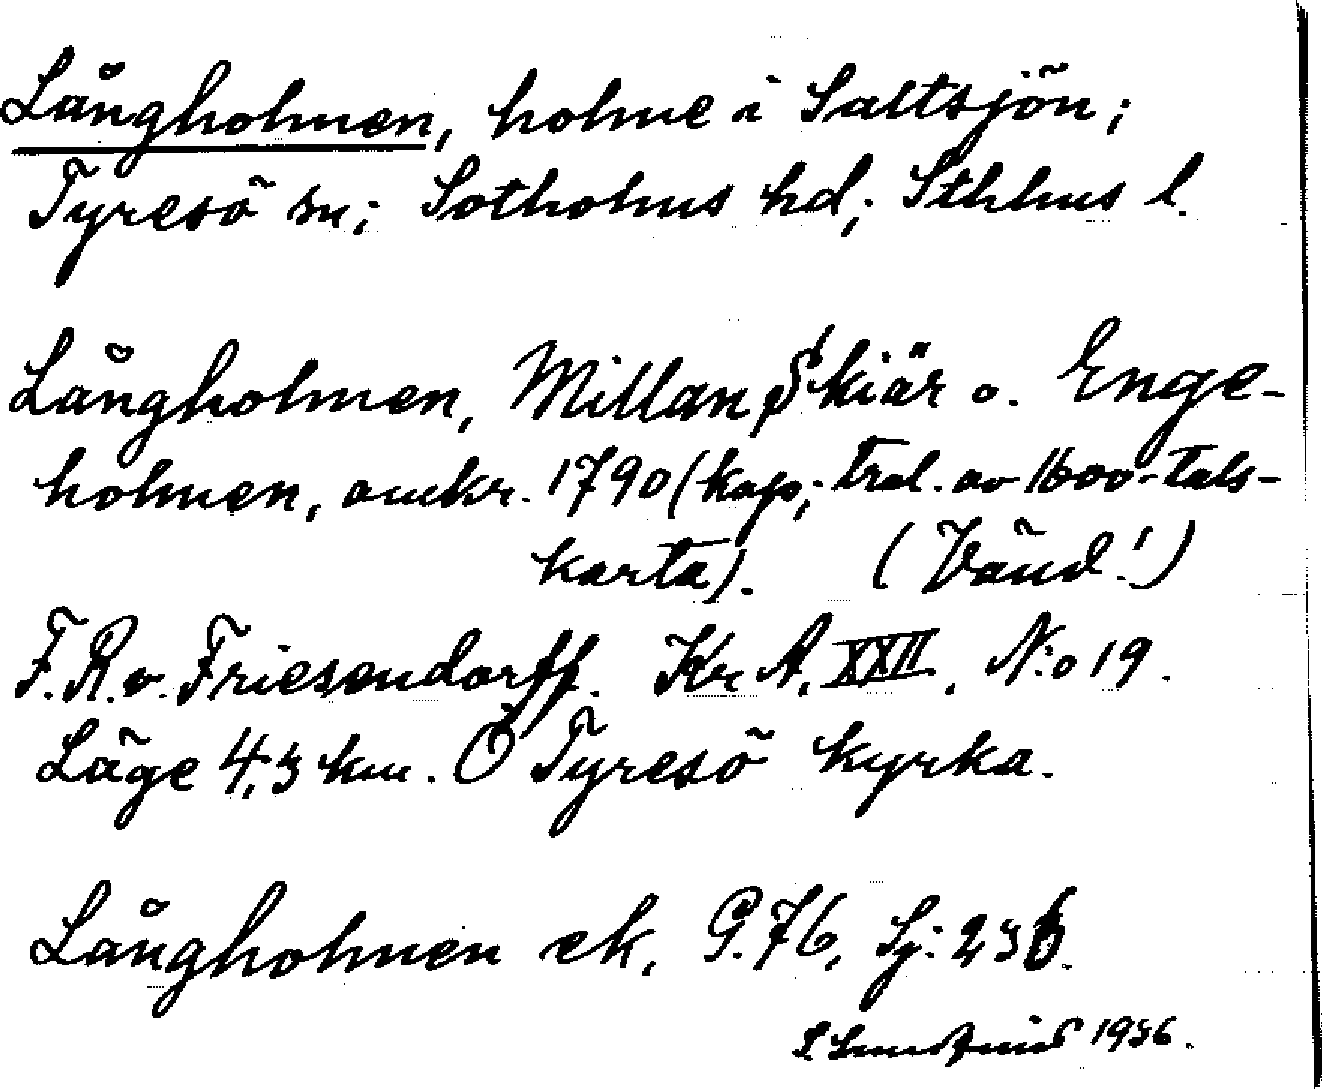 Långholmen, holme i Saltsjön;
Tyresö sn; Sotholms hd; Sthlms l.
Långholmen, Millan Skiär o. Enge-
holmen, omkr. 1790 (kop; trol. av 1600-tals-
karta). (Vänd!)
F.R.v. Friesendorff. Kr A, XXII, N:o 19.
Läge 4,5 km. Ö Tyresö kyrka.
Långholmen ek, G.76, Sj: 236.
1936.